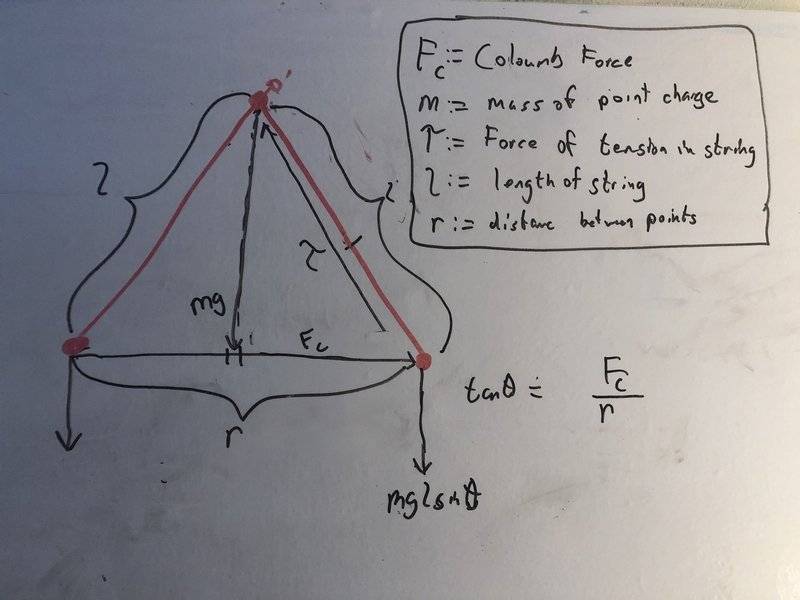 F_c := Coloumb Force
m := mass of point charge
τ := Force of tension in string
l := length of string
r := distance between points
l
τ
mg
F_c
r
tanθ = F_c / r
mglsinθ